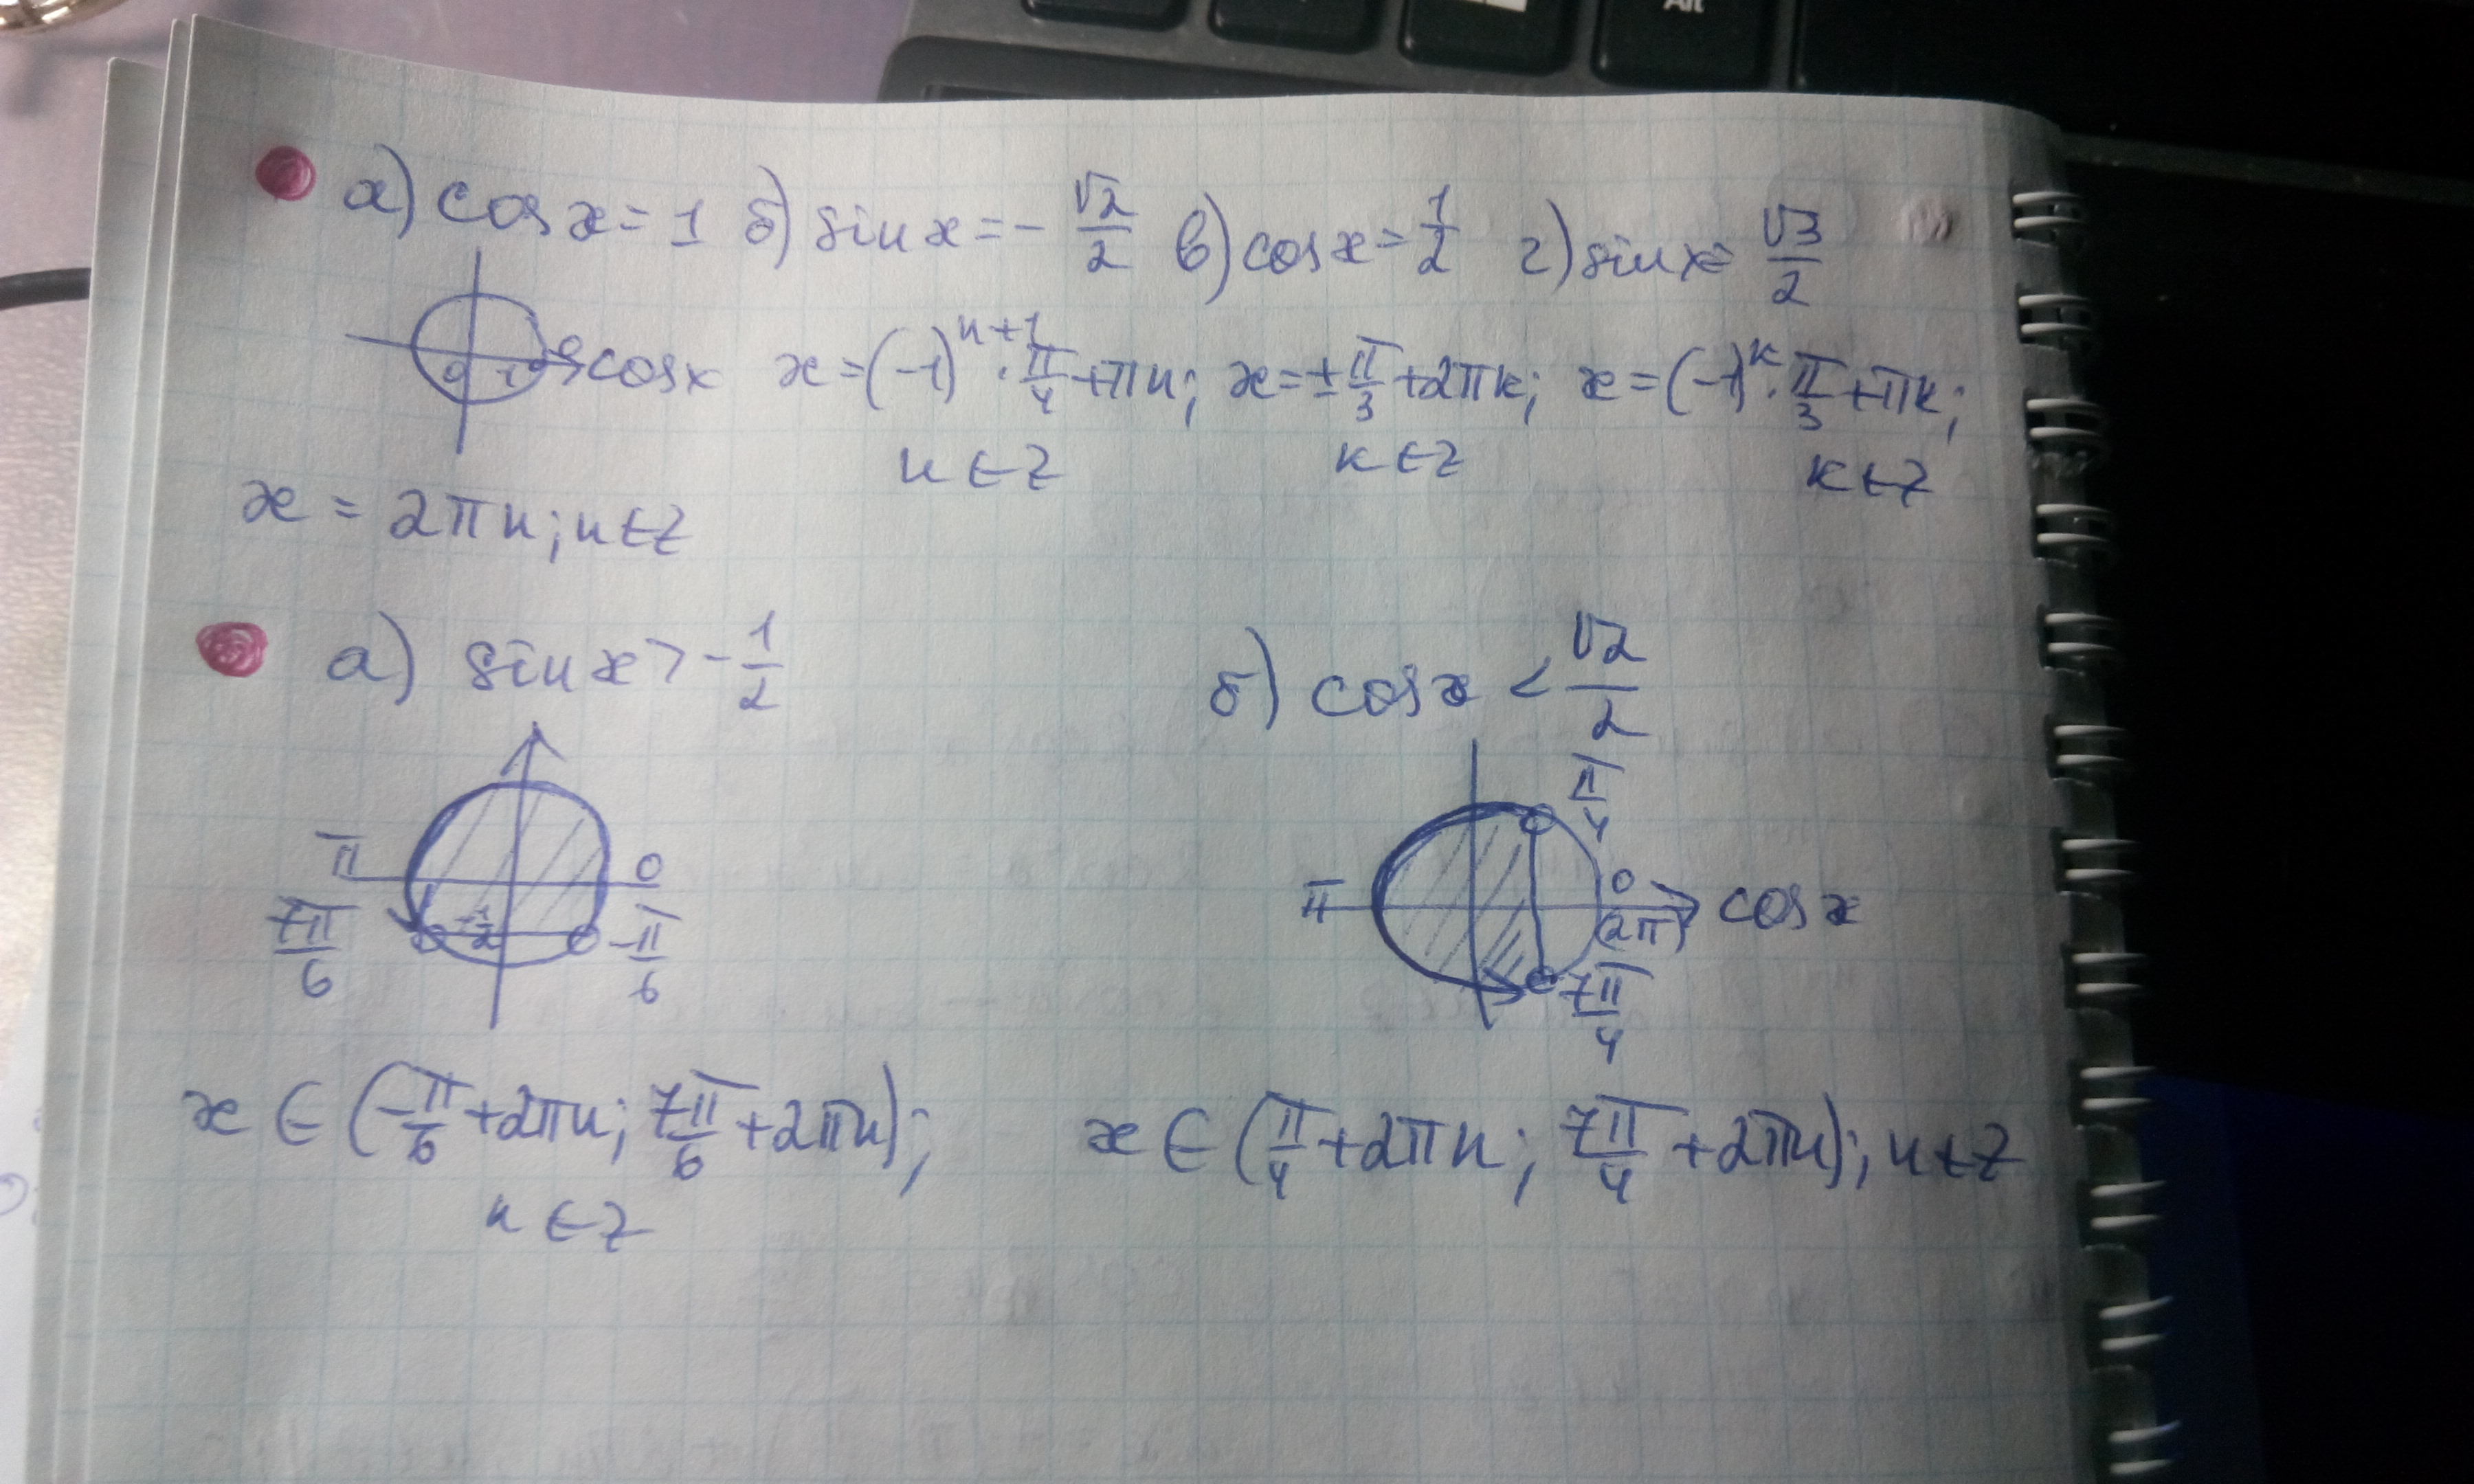 а) cos x = 1 б) sin x = - √2/2 в) cos x = 1/2 г) sin x = √3/2
0 1 0 cos x
x = (-1)^(n+1) · π/4 + πn; x = ± π/3 + 2πk; x = (-1)^k · π/3 + πk;
n ∈ Z k ∈ Z k ∈ Z
x = 2πn; n ∈ Z
а) sin x > - 1/2 б) cos x < √2/2
π 0 7π/6 -1/2 -π/6
π/4 π 0 (2π) cos x 7π/4
x ∈ (-π/6 + 2πn; 7π/6 + 2πn); x ∈ (π/4 + 2πn; 7π/4 + 2πn); n ∈ Z
n ∈ Z